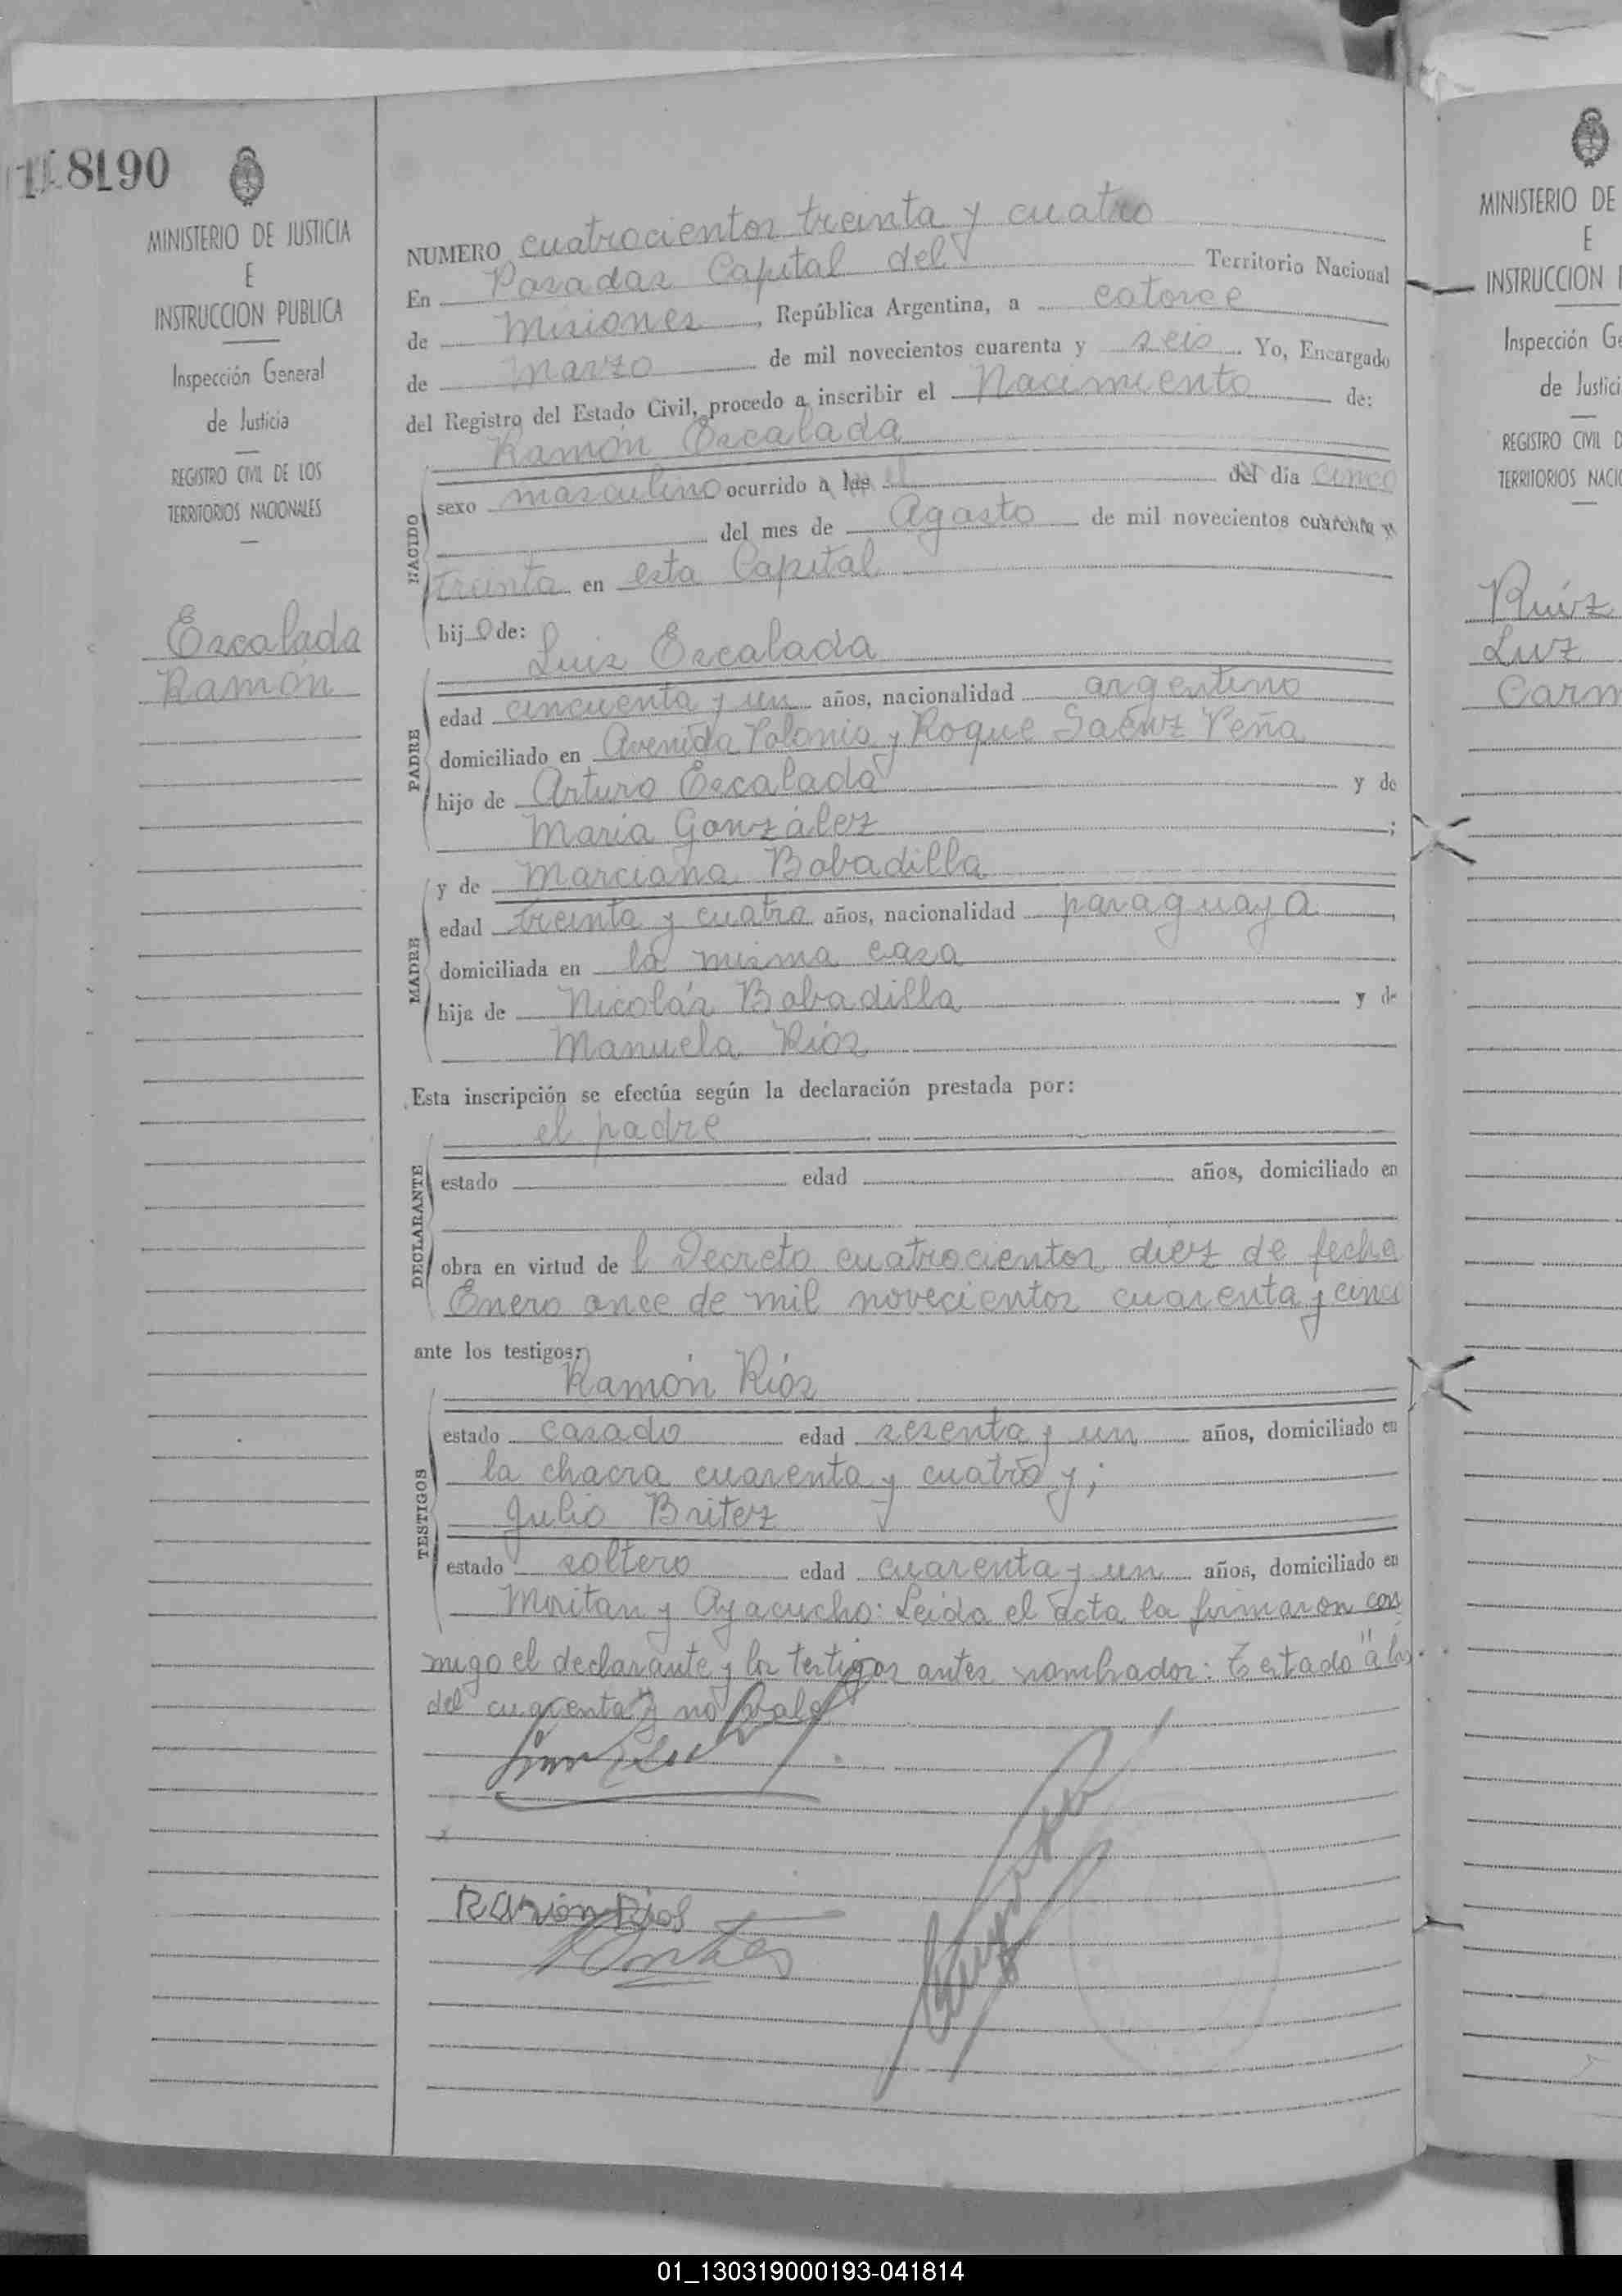 8190
MINISTERIO DE JUSTICIA
E
INSTRUCCION PUBLICA
Inspección General
de Justicia
REGISTRO CIVIL DE LOS
TERRITORIOS NACIONALES
Escalada
Ramón
NUMERO cuatrocientos treinta y cuatro
En Posadas Capital del Territorio Nacional
de Misiones, República Argentina, a catorce
de Marzo de mil novecientos cuarenta y seis. Yo, Encargado
del Registro del Estado Civil, procedo a inscribir el Nacimiento de:
Ramón Escalada
NACIDO
sexo masculino ocurrido a las el del dia cinco
del mes de Agosto de mil novecientos cuarenta y
treinta en esta Capital
hijo de:
Luis Escalada
PADRE
edad cincuenta y un años, nacionalidad argentino
domiciliado en Avenida Polonia y Roque Saénz Peña
hijo de Arturo Escalada y de
María González;
y de Marciana Bobadilla
MADRE
edad treinta y cuatro años, nacionalidad paraguaya
domiciliada en la misma casa
hija de Nicolás Bobadilla y de
Manuela Ríos
Esta inscripción se efectúa según la declaración prestada por:
el padre
DECLARANTE
estado edad años, domiciliado en
obra en virtud del Decreto cuatrocientos diez de fecha
Enero once de mil novecientos cuarenta y cinco
ante los testigos:
Ramón Ríos
TESTIGOS
estado casado edad sesenta y un años, domiciliado en
la chacra cuarenta y cuatro y;
Julio Britez
estado soltero edad cuarenta y un años, domiciliado en
Moritan y Ayacucho: Leida el acta la firmaron con
migo el declarante y los testigos antes nombrados: Testado "a las
del cuarenta y" no vale
Ramón Rios
MINISTERIO DE
E
INSTRUCCION
Inspección Ge
de Justici
REGISTRO CIVIL D
TERRITORIOS NACIO
Ruíz
Luz
Carm
01_130319000193-041814